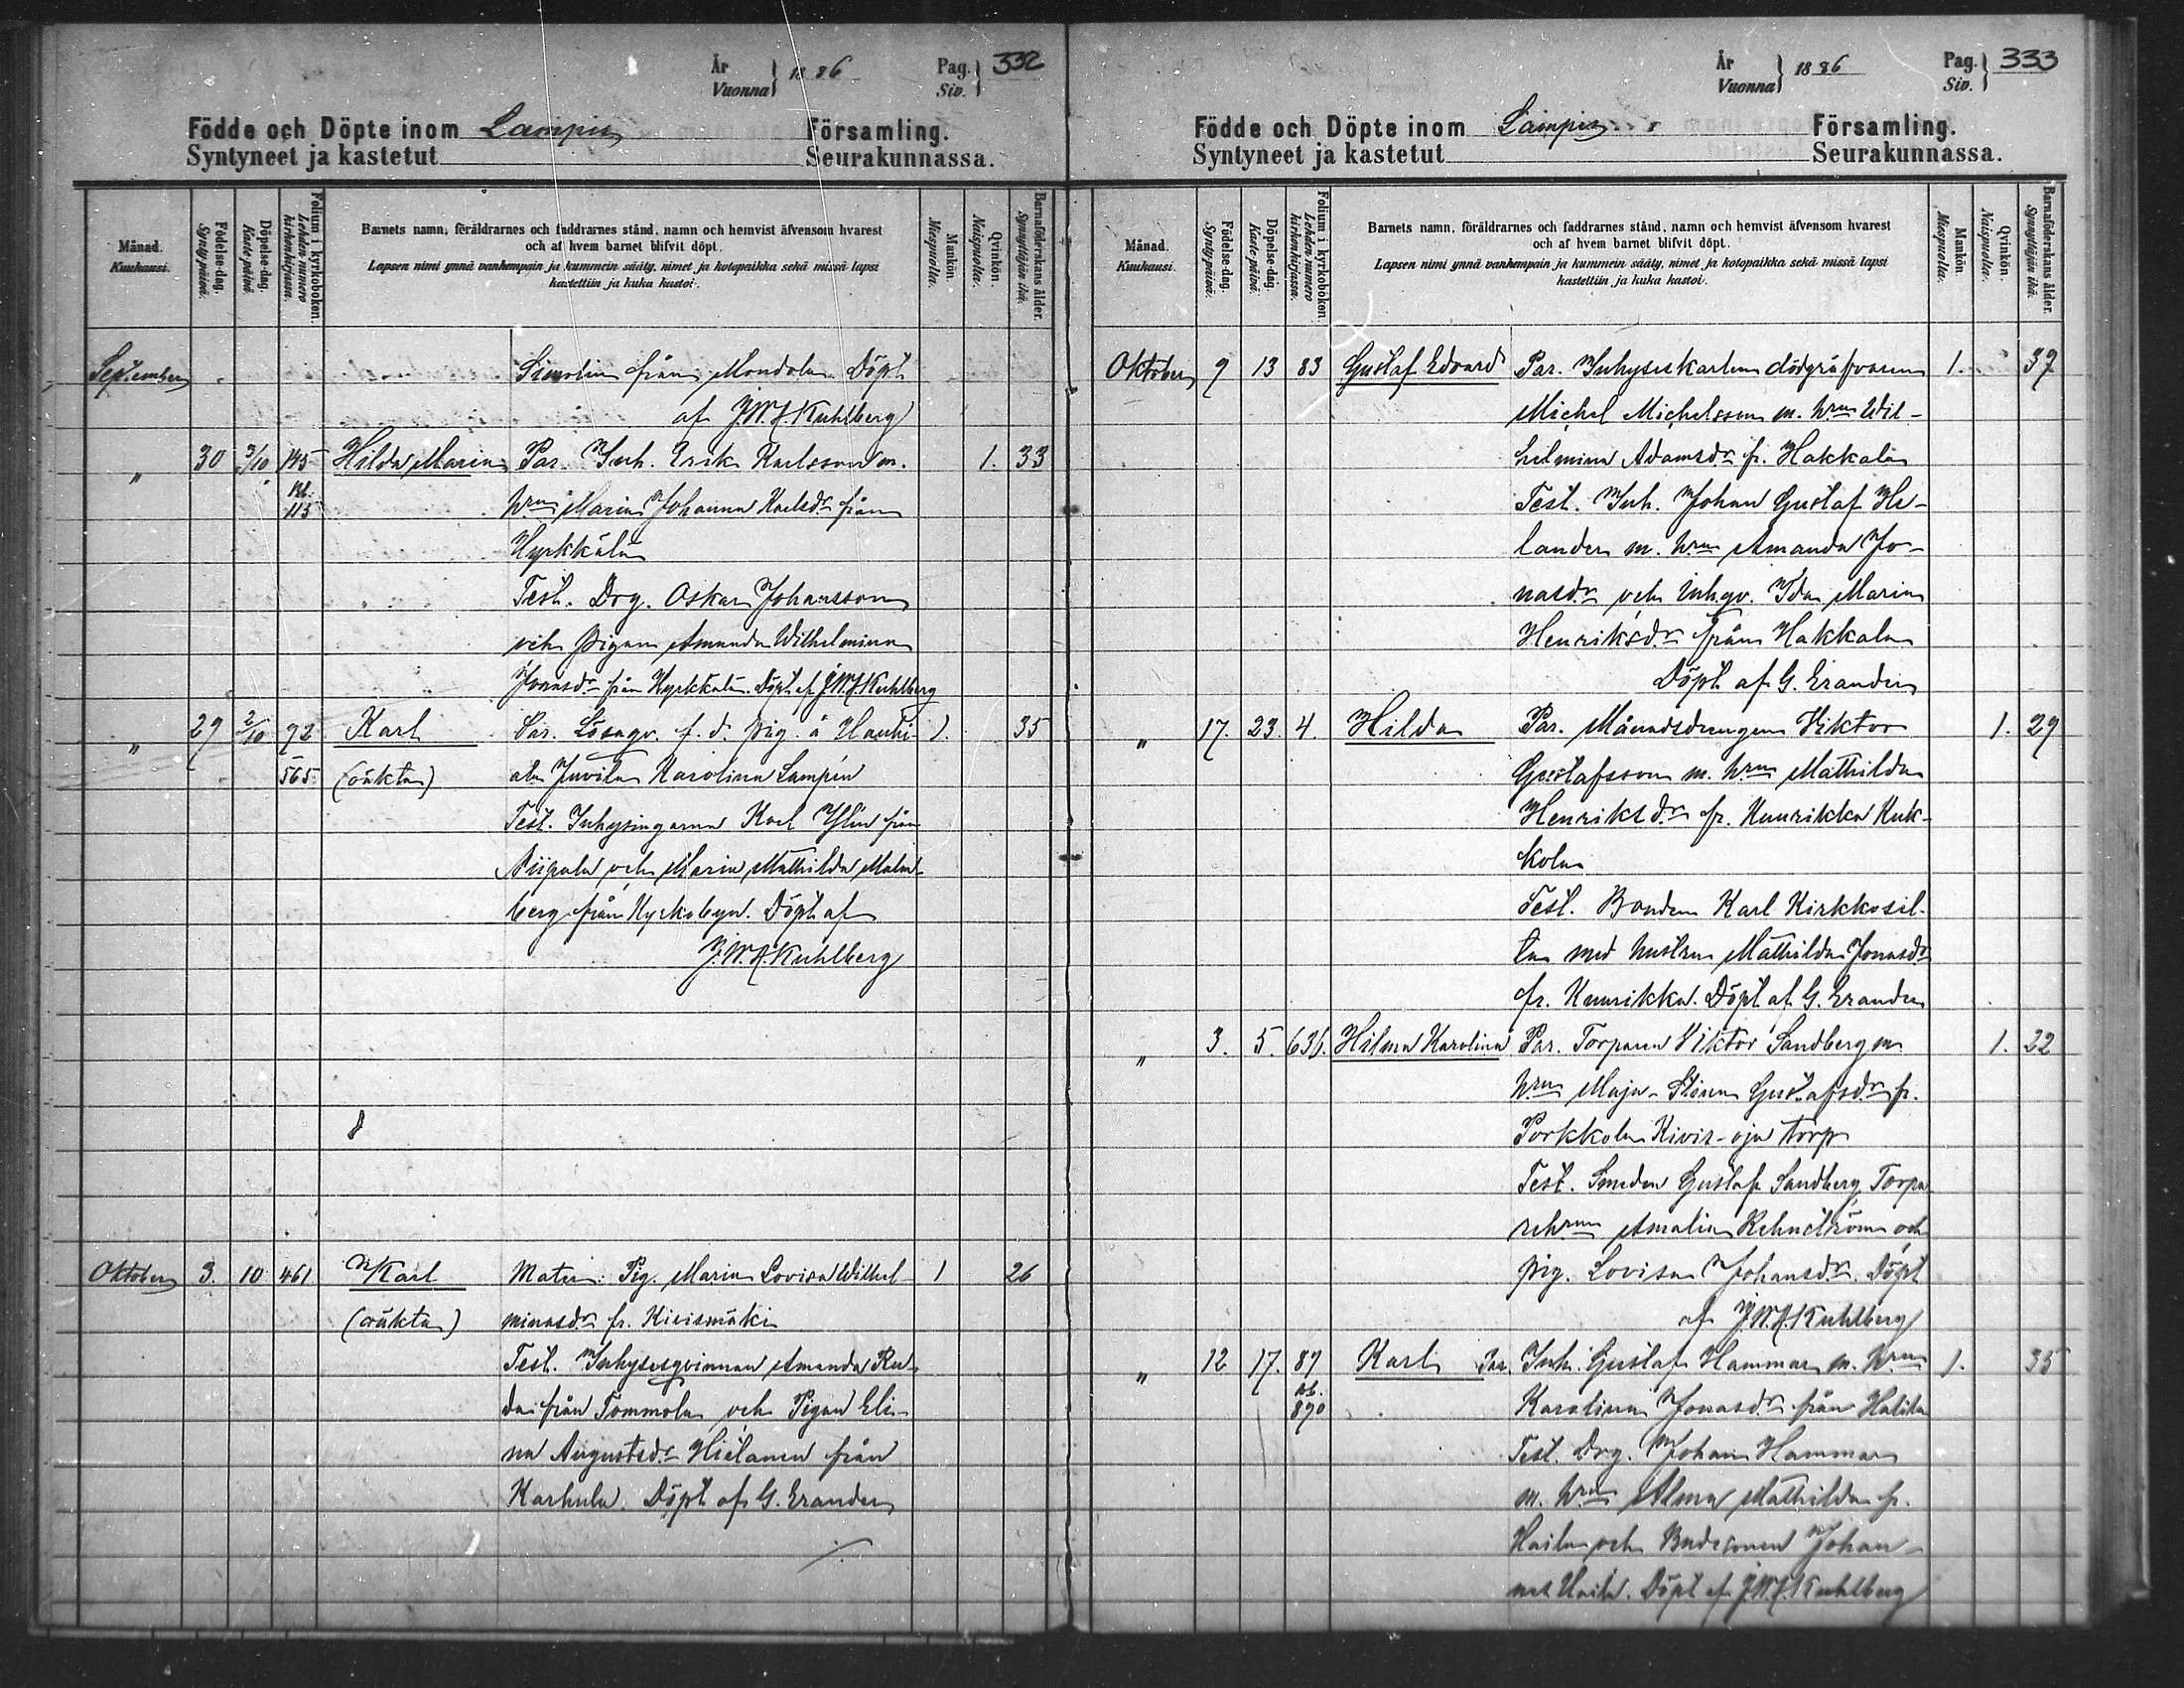 År
Vuonna } 1886
Pag.
Siv. } 332
Födde och Döpte inom Lampis Församling.
Syntyneet ja kastetut Seurakunnassa.
Månad.
Kuukausi.
Födelse-dag.
Synty-päivä.
Döpelse-dag.
Kaste-päivä.
Folium i kyrkoboken.
Lehden numero kirkonkirjassa.
Barnets namn, föräldrarnes och faddrarnes stånd, namn och hemvist äfvensom hvarest
och af hvem barnet blifvit döpt.
Lapsen nimi ynnä vanhempain ja kummein sääty, nimet ja kotopaikka sekä missä lapsi
kastettiin ja kuka kastoi.
Mankön.
Miespuolta.
Qvinkön.
Naispuolta.
Barnaföderskans ålder.
Synnyttäjän ikä.
September från Mondola Döpt
af J.W.A. Kuhlberg
" 30 3/10 145 Hilda Maria Par. Inh. Erik Karlsson m. 1. 33
115 hru Maria Johanna Karlsdr från
Hyrkkälä
Test. Drg. Oskar Johansson
och pigan Amanda Wilhelmina
Jonasdr från Hyrkkälä. Döpt af J.W.A. Kuhlberg
" 29 2/10 92 Karl Par. Lösaqv. f.d. pig. å 1. 35
565 (oäkta) Juvila Karolina Lampén
Test. Inhysingarna Karl Ylin från
och Maria Mathilda Malm-
berg från Kyrkobyn. Döpt af
J.W.A. Kuhlberg
Oktober 3. 10 461 Karl Mater: Pig. Maria Lovisa Wilhel- 1 26
(oäkta) minasdr fr. Kivismäki
Test. Inhysesqvinnan Amanda Ru-
da från Tommola och Pigan Eli-
na Augustsdr Hietanen från
Karhula. Döpt af G. Erander
År
Vuonna } 1886
Pag.
Siv. } 333
Födde och Döpte inom Lampis Församling.
Syntyneet ja kastetut Seurakunnassa.
Månad.
Kuukausi.
Födelse-dag.
Synty-päivä.
Döpelse-dag.
Kaste-päivä.
Folium i kyrkoboken.
Lehden numero kirkonkirjassa.
Barnets namn, föräldrarnes och faddrarnes stånd, namn och hemvist äfvensom hvarest
och af hvem barnet blifvit döpt.
Lapsen nimi ynnä vanhempain ja kummein sääty, nimet ja kotopaikka sekä missä lapsi
kastettiin ja kuka kastoi.
Mankön.
Miespuolta.
Qvinkön.
Naispuolta.
Barnaföderskans ålder.
Synnyttäjän ikä.
Oktober 9 13 83 Gustaf Edvard Par. Inhyseskarlen dödgräfvaren 1. 37
Michel Michelsson m. hru Wil-
helmina Adamsdr fr. Hakkala
Test. Inh. Johan Gustaf He-
lander m. hru Amanda Jo-
nasdr och Inhqv. Ida Maria
Henriksdr från Hakkala
Döpt af G. Erander
" 17. 23. 4. Hilda Par. Månadsdrengen Viktor 1. 29
Gustafsson m. hru Mathilda
Henriksdr fr. Kuurikka Kuk-
kola
Test. Bonden Karl Kirkkosil-
ta med hustru Mathilda Jonasdr
fr. Kuurikka. Döpt af G. Erander
" 3. 5. 636. Hilma Karolina Par. Torparen Viktor Sandberg m. 1. 22
hru Maja-Stina Gustafsdr fr.
Porkkola Kivis-oja torp
Test. Smeden Gustaf Sandberg, Torpa-
rehru Amalia Rehnström och
pig. Lovisa Johansdr. Döpt
af J.W.A. Kuhlberg
" 12 17. 87 Karl Par. Inh. Gustaf Hammar m. hru 1. 35
890 Karolina Jonasdr från
Test. Drg. Johan Hammar
m. hru Alma Mathilda fr.
och Johan-
nes. Döpt af J.W.A. Kuhlberg